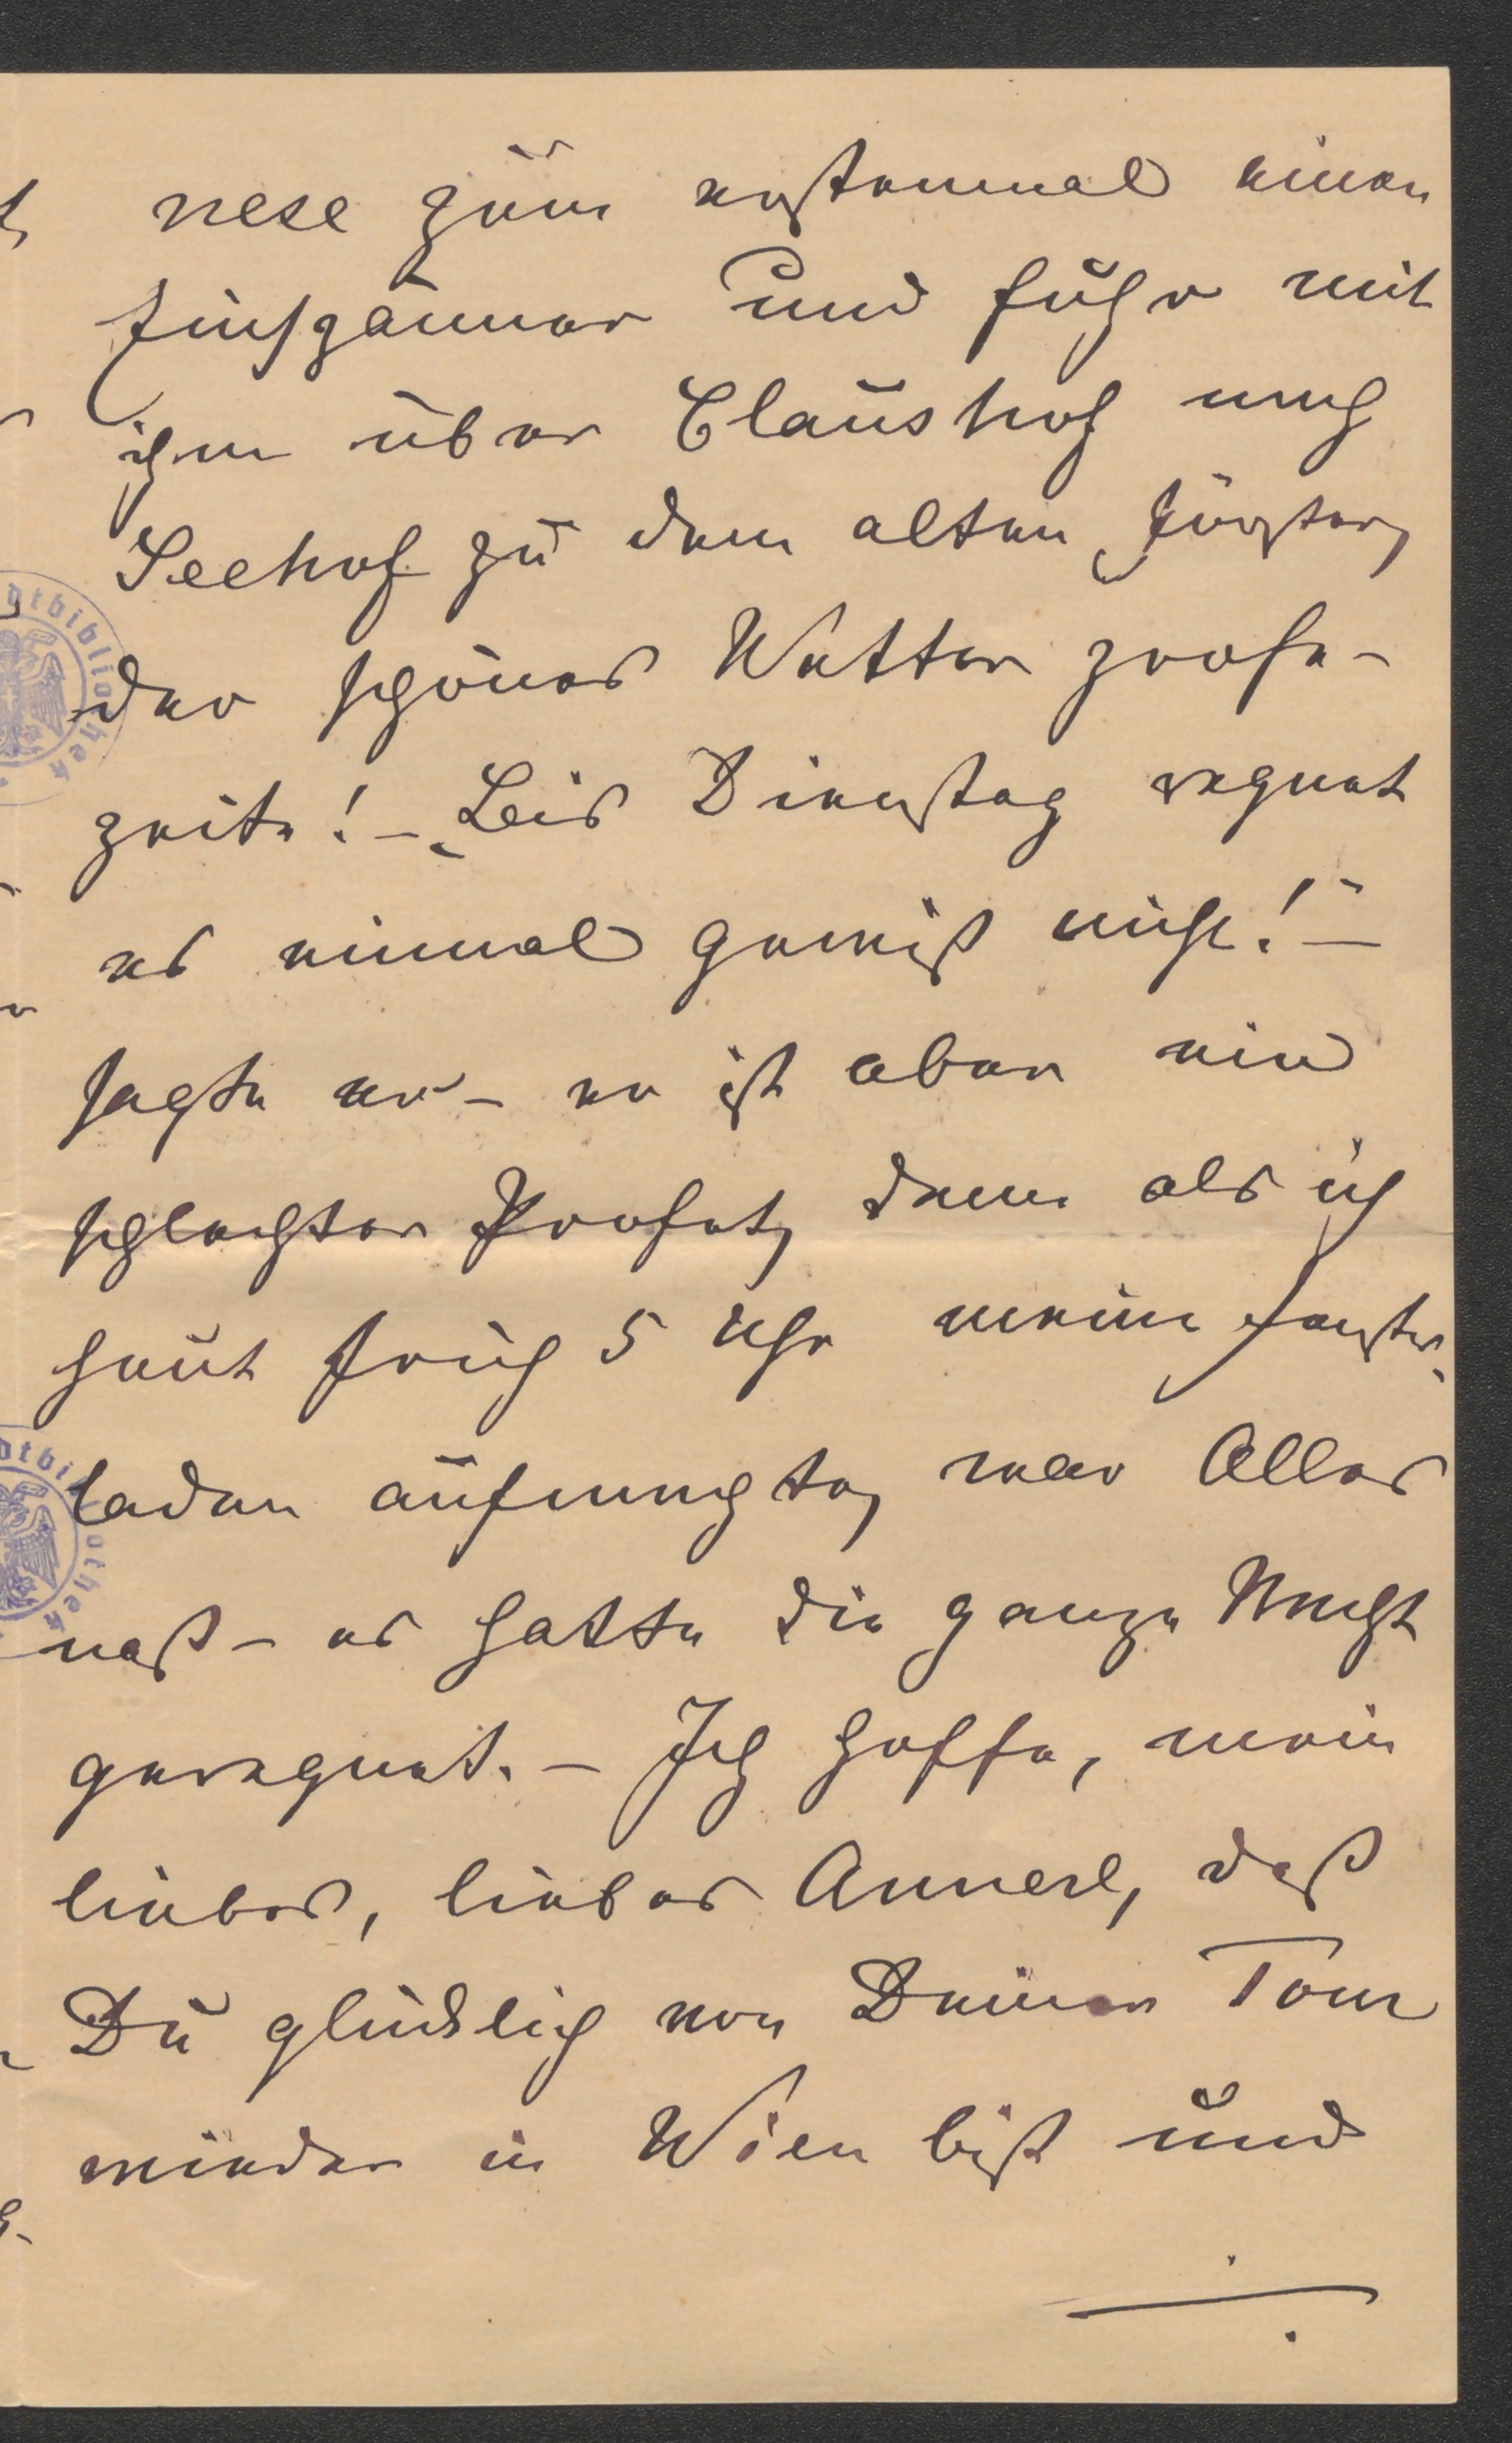 nese zum erstenmal einen
Einspänner und fuhr mit
ihm über Claushof nach
Seehof zu dem alten Förster,
der schönes Wetter profe-
zeite! – „Bis Dienstag regnet
es einmal gewiß nicht!“ –
sagte er – er ist aber ein
schlechter Profet, denn als ich
heut früh 5 Uhr meine Fenster-
laden aufmachte, war Alles
naß – es hatte die ganze Nacht
geregnet. – Ich hoffe, mein
liebes, liebes Annerl, daß
Du glücklich von Deiner Tour
wieder in Wien bist und